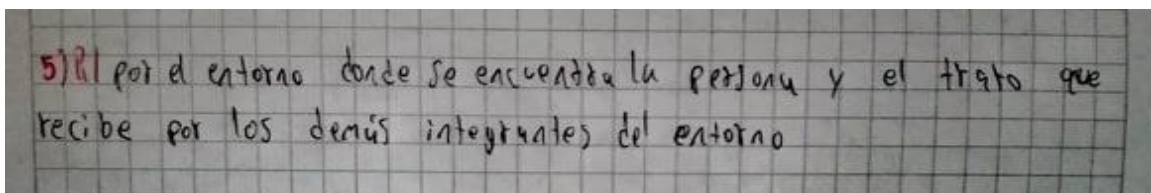 5) R/ por el entorno donde se encuentra la persona y el trato que
recibe por los demás integrantes del entorno